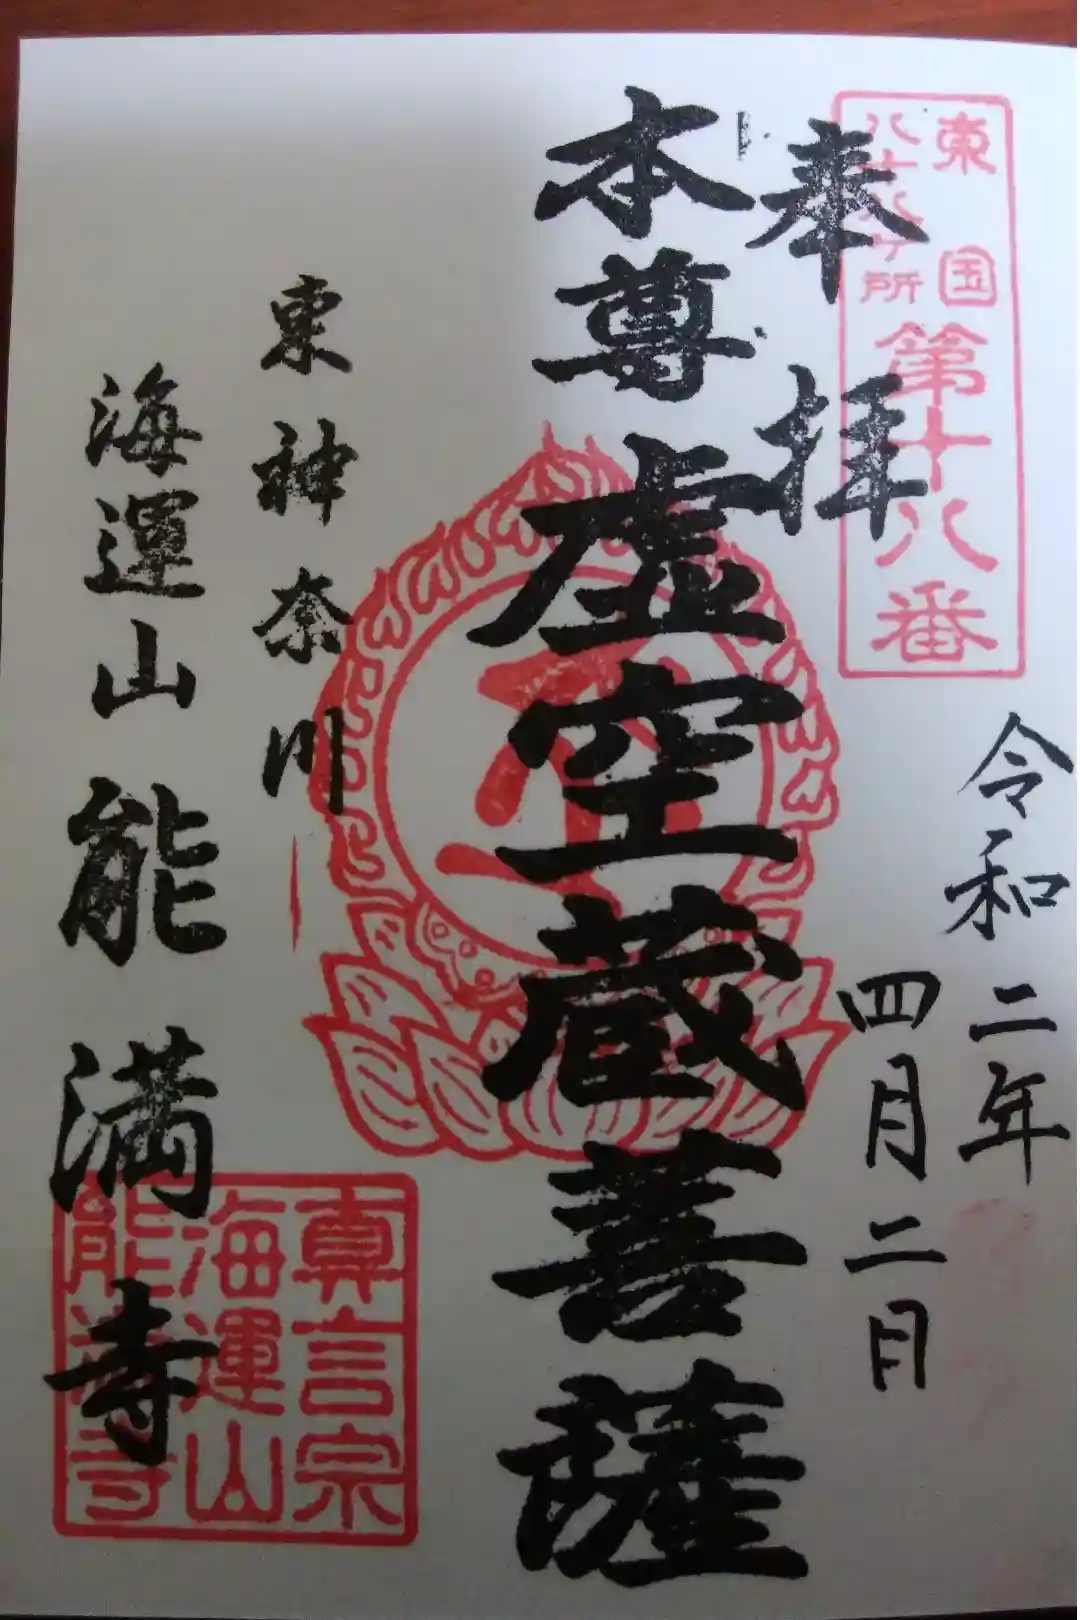 東国
八十八ヶ所
第十八番
奉拝
令和二年
四月二日
本尊虚空蔵菩薩
東神奈川
海運山能満寺
真言宗
海運山
能満寺